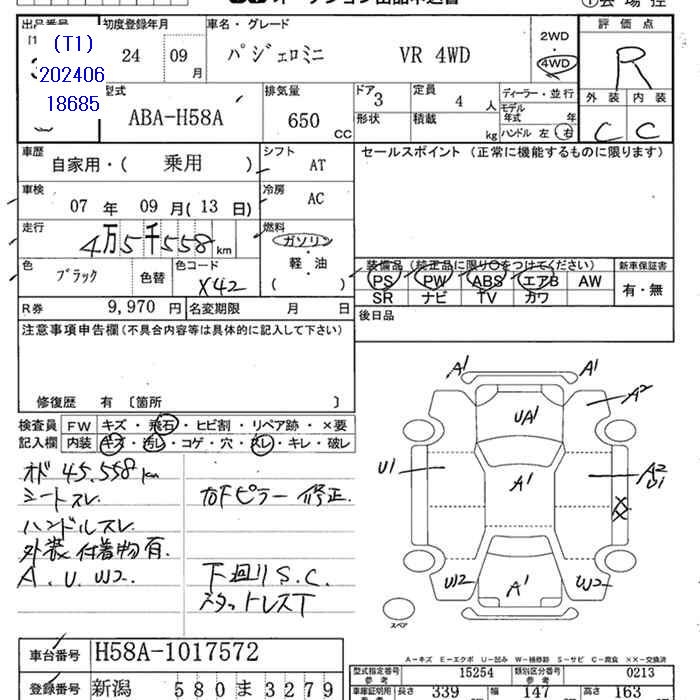 出品番号
(T1)
202406
18685
初度登録年月
24 09 月
車名・グレード
パジェロミニ VR 4WD
2WD
4WD
評価点
R
外装 内装
C C
型式
ABA-H58A
排気量
650 CC
ドア
3
形状
定員
4 人
積載 kg
ディーラー・並行
モデル
年式 年
ハンドル 左 右
車歴
自家用・( 乗用 )
シフト
AT
車検
07 年 09 月 ( 13 日)
冷房
AC
走行
4万5千558 km
燃料
ガソリン
軽・油
( )
色
ブラック
色替
色コード
X42
R券
9,970 円
名変期限 月 日
セールスポイント (正常に機能するものに限ります)
装備品 (純正品に限り〇をつけてください)
PS PW ABS エアB AW
SR ナビ TV カワ
新車保証書
有・無
後日品
注意事項申告欄 (不具合内容等は具体的に記入して下さい)
修復歴 有 〔箇所 〕
検査員
記入欄
FW キズ・飛石・ヒビ割・リペア跡・×要
内装 キズ・汚レ・コゲ・穴・スレ・キレ・破レ
オド 45.558 km
シートスレ
ハンドルスレ
外装付着物有.
A. U. W2.
右Fピラー修正.
下回り S.C.
スタットレスT
A1 A1
A2
UA1
U1
A1
A2
U1
XX
U2
W2
A1
スペア
A-キズ E-エクボ U-凹み W-補修跡 S-サビ C-腐食 ××-交換済
車台番号
H58A-1017572
登録番号
新潟 580 ま 3279
型式指定番号
参考
15254
類別区分番号
参考
0213
車庫証明用
参考
長さ 339 幅 147 高さ 163